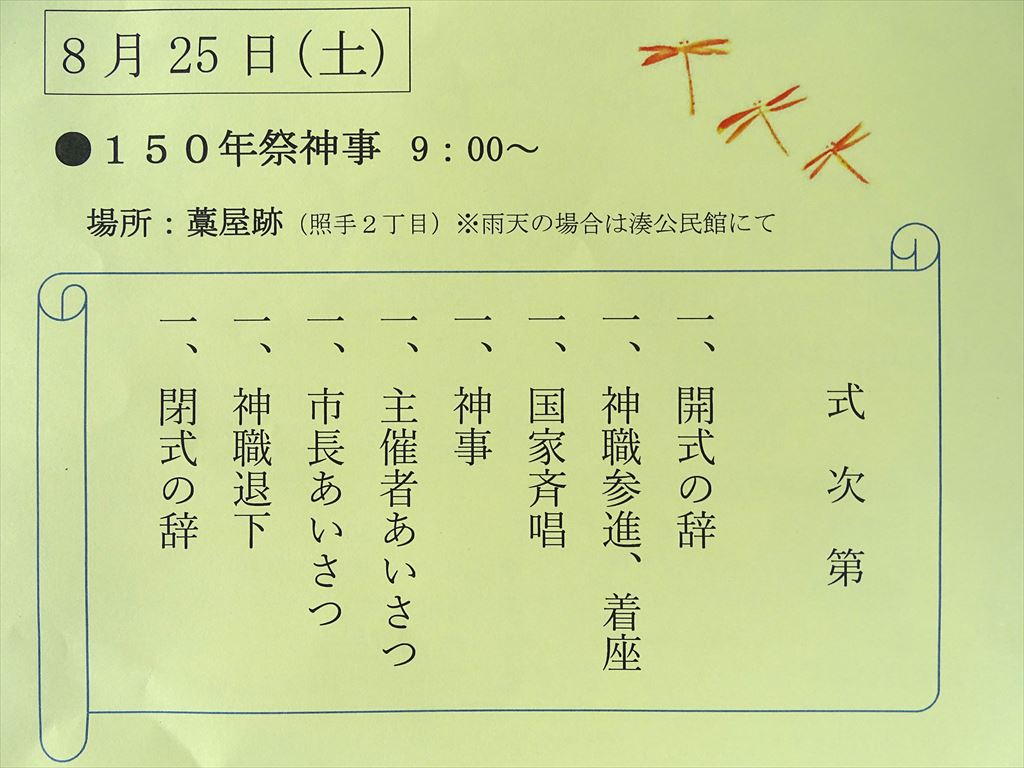 8月25日(土)
●１５０年祭神事 9：00～
場所：藁屋跡（照手２丁目）※雨天の場合は湊公民館にて
式次第
一、開式の辞
一、神職参進、着座
一、国家斉唱
一、神事
一、主催者あいさつ
一、市長あいさつ
一、神職退下
一、閉式の辞